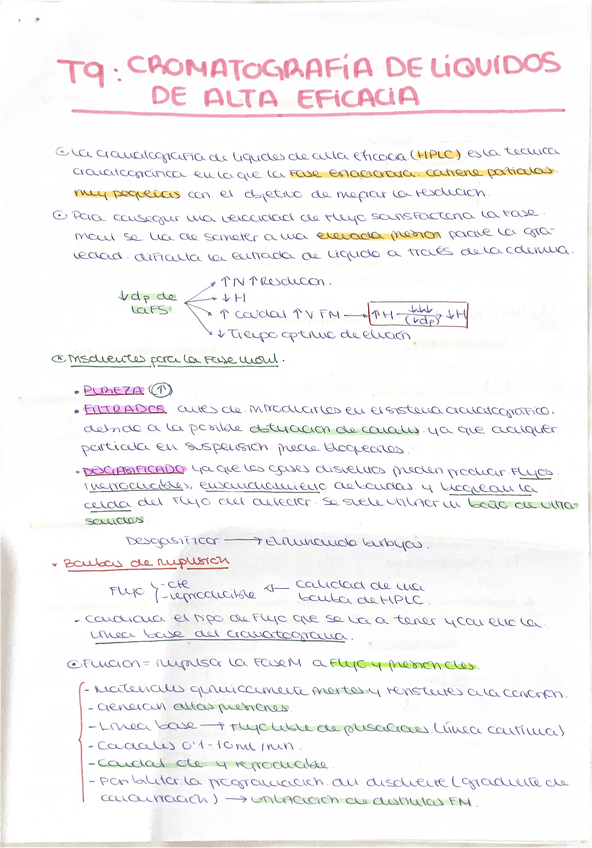 T9: CROMATOGRAFÍA DE LÍQUIDOS
DE ALTA EFICACIA
La cromatografía de líquidos de alta eficacia (HPLC) es la técnica
cromatográfica en la que la Fase estacionaria contiene partículas
muy pequeñas con el objetivo de mejorar la resolución.
Para conseguir una velocidad de Flujo satisfactoria la Fase
movil se ha de someter a una elevada presion porque la gra-
vedad dificulta la entrada de líquido a través de la columna.
↓dp de la FS
↑N ↑Resolucion.
↓H
↑ caudal ↑V FM → ↑H ↓↓↓ (↓dp) ↓H
↓Tiempo optimo de elución
Disolventes para la Fase movil.
• PUREZA (↑)
• FILTRADOS antes de introducirlos en el sistema cromatográfico,
debido a la posible obturacion de canales ya que cualquier
particula en suspensión puede bloquearlos.
• DESGASIFICADO ya que los gases disueltos pueden producir Flujos
irreproducibles, ensanchamiento de bandas y
del Flujo del detector. Se suele utilizar un baño de ultra-
sonidos
Desgasificar → Eliminando burbujas.
• Bombas de impulsion
Flujo - cte - reproducible ← calidad de una
bomba de HPLC.
- Condiciona el tipo de Flujo que se va a tener y con ello la
línea base del cromatograma.
Función = impulsar la Fase M a Flujo y presion ctes.
- Materiales químicamente inertes y resistentes a la corrosión.
- Generan altas presiones.
- Línea base → Flujo libre de pulsaciones (línea continua)
- Caudales 0'1-10 ml/min.
- Caudal cte y reproducible
- Posibilitar la programacion del disolvente (gradiente de
concentración) → utilización de distintas FM.